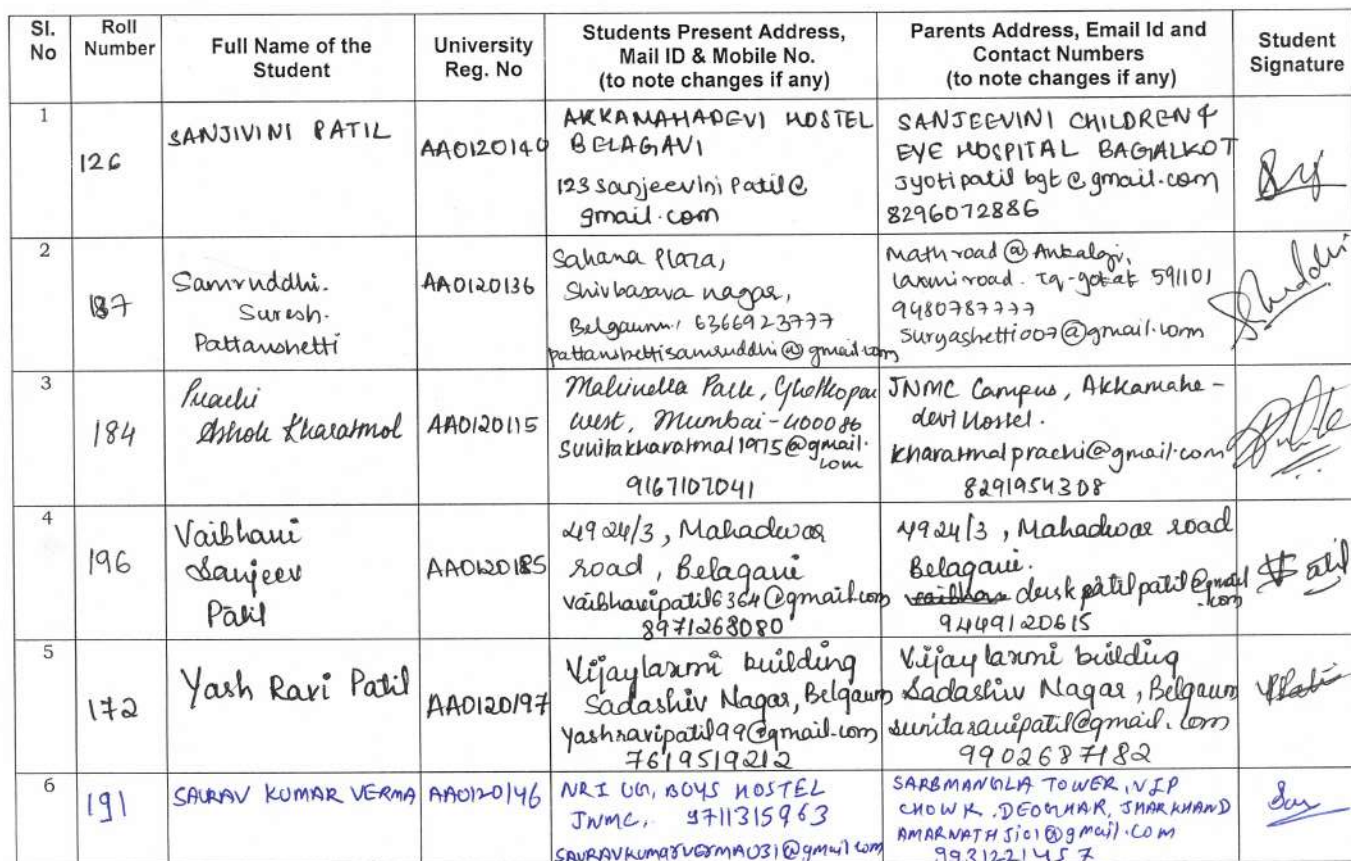 Sl. No
Roll Number
Full Name of the Student
University Reg. No
Students Present Address, Mail ID & Mobile No. (to note changes if any)
Parents Address, Email Id and Contact Numbers (to note changes if any)
Student Signature
1
126
SANJIVINI PATIL
AA0120140
AKKAMAHADEVI HOSTEL
BELAGAVI
123sanjeevini Patil@
gmail.com
SANJEEVINI CHILDREN &
EYE HOSPITAL BAGALKOT
Jyotipatil bgt@gmail.com
8296072886
2
187
Samruddhi.
Suresh.
Pattanshetti
AA0120136
Sahana Plaza,
Shivbasava nagar,
Belgaum, 6366923777
pattanshettisamruddhi@gmail.com
Math road @ Ankalgi,
laxmi road. Tq-gokak 591101
9480787777
Suryashetti007@gmail.com
3
184
Prachi
Ashok Kharatmol
AA0120115
Park, Ghatkopar
west, Mumbai-400086
Sunitakharatmal1975@gmail.
com
9167107041
JNMC Campus, Akkamahe-
devi Hostel.
kharatmalprachi@gmail.com
8291954308
4
196
Vaibhavi
Sanjeev
Patil
AA0120185
4924/3, Mahadwar
road, Belagavi
vaibhavipatil6364@gmail.com
8971268080
4924/3, Mahadwar road
Belagavi.
patilpatil@gmail
.com
9449120615
5
172
Yash Ravi Patil
AA0120197
Vijaylaxmi building
Sadashiv Nagar, Belgaum
yashravipatil99@gmail.com
7619519212
Vijaylaxmi building
Sadashiv Nagar, Belgaum
sunitaravipatil@gmail.com
9902687182
6
191
SAURAV KUMAR VERMA
AA0120146
NRI UG, BOYS HOSTEL
JNMC, 9711315963
SAURAVKUMARVERMA031@gmail.com
SARBMANGLA TOWER, VIP
CHOWK, DEOGHAR, JHARKHAND
AMARNATHJi01@gmail.com
9931221457